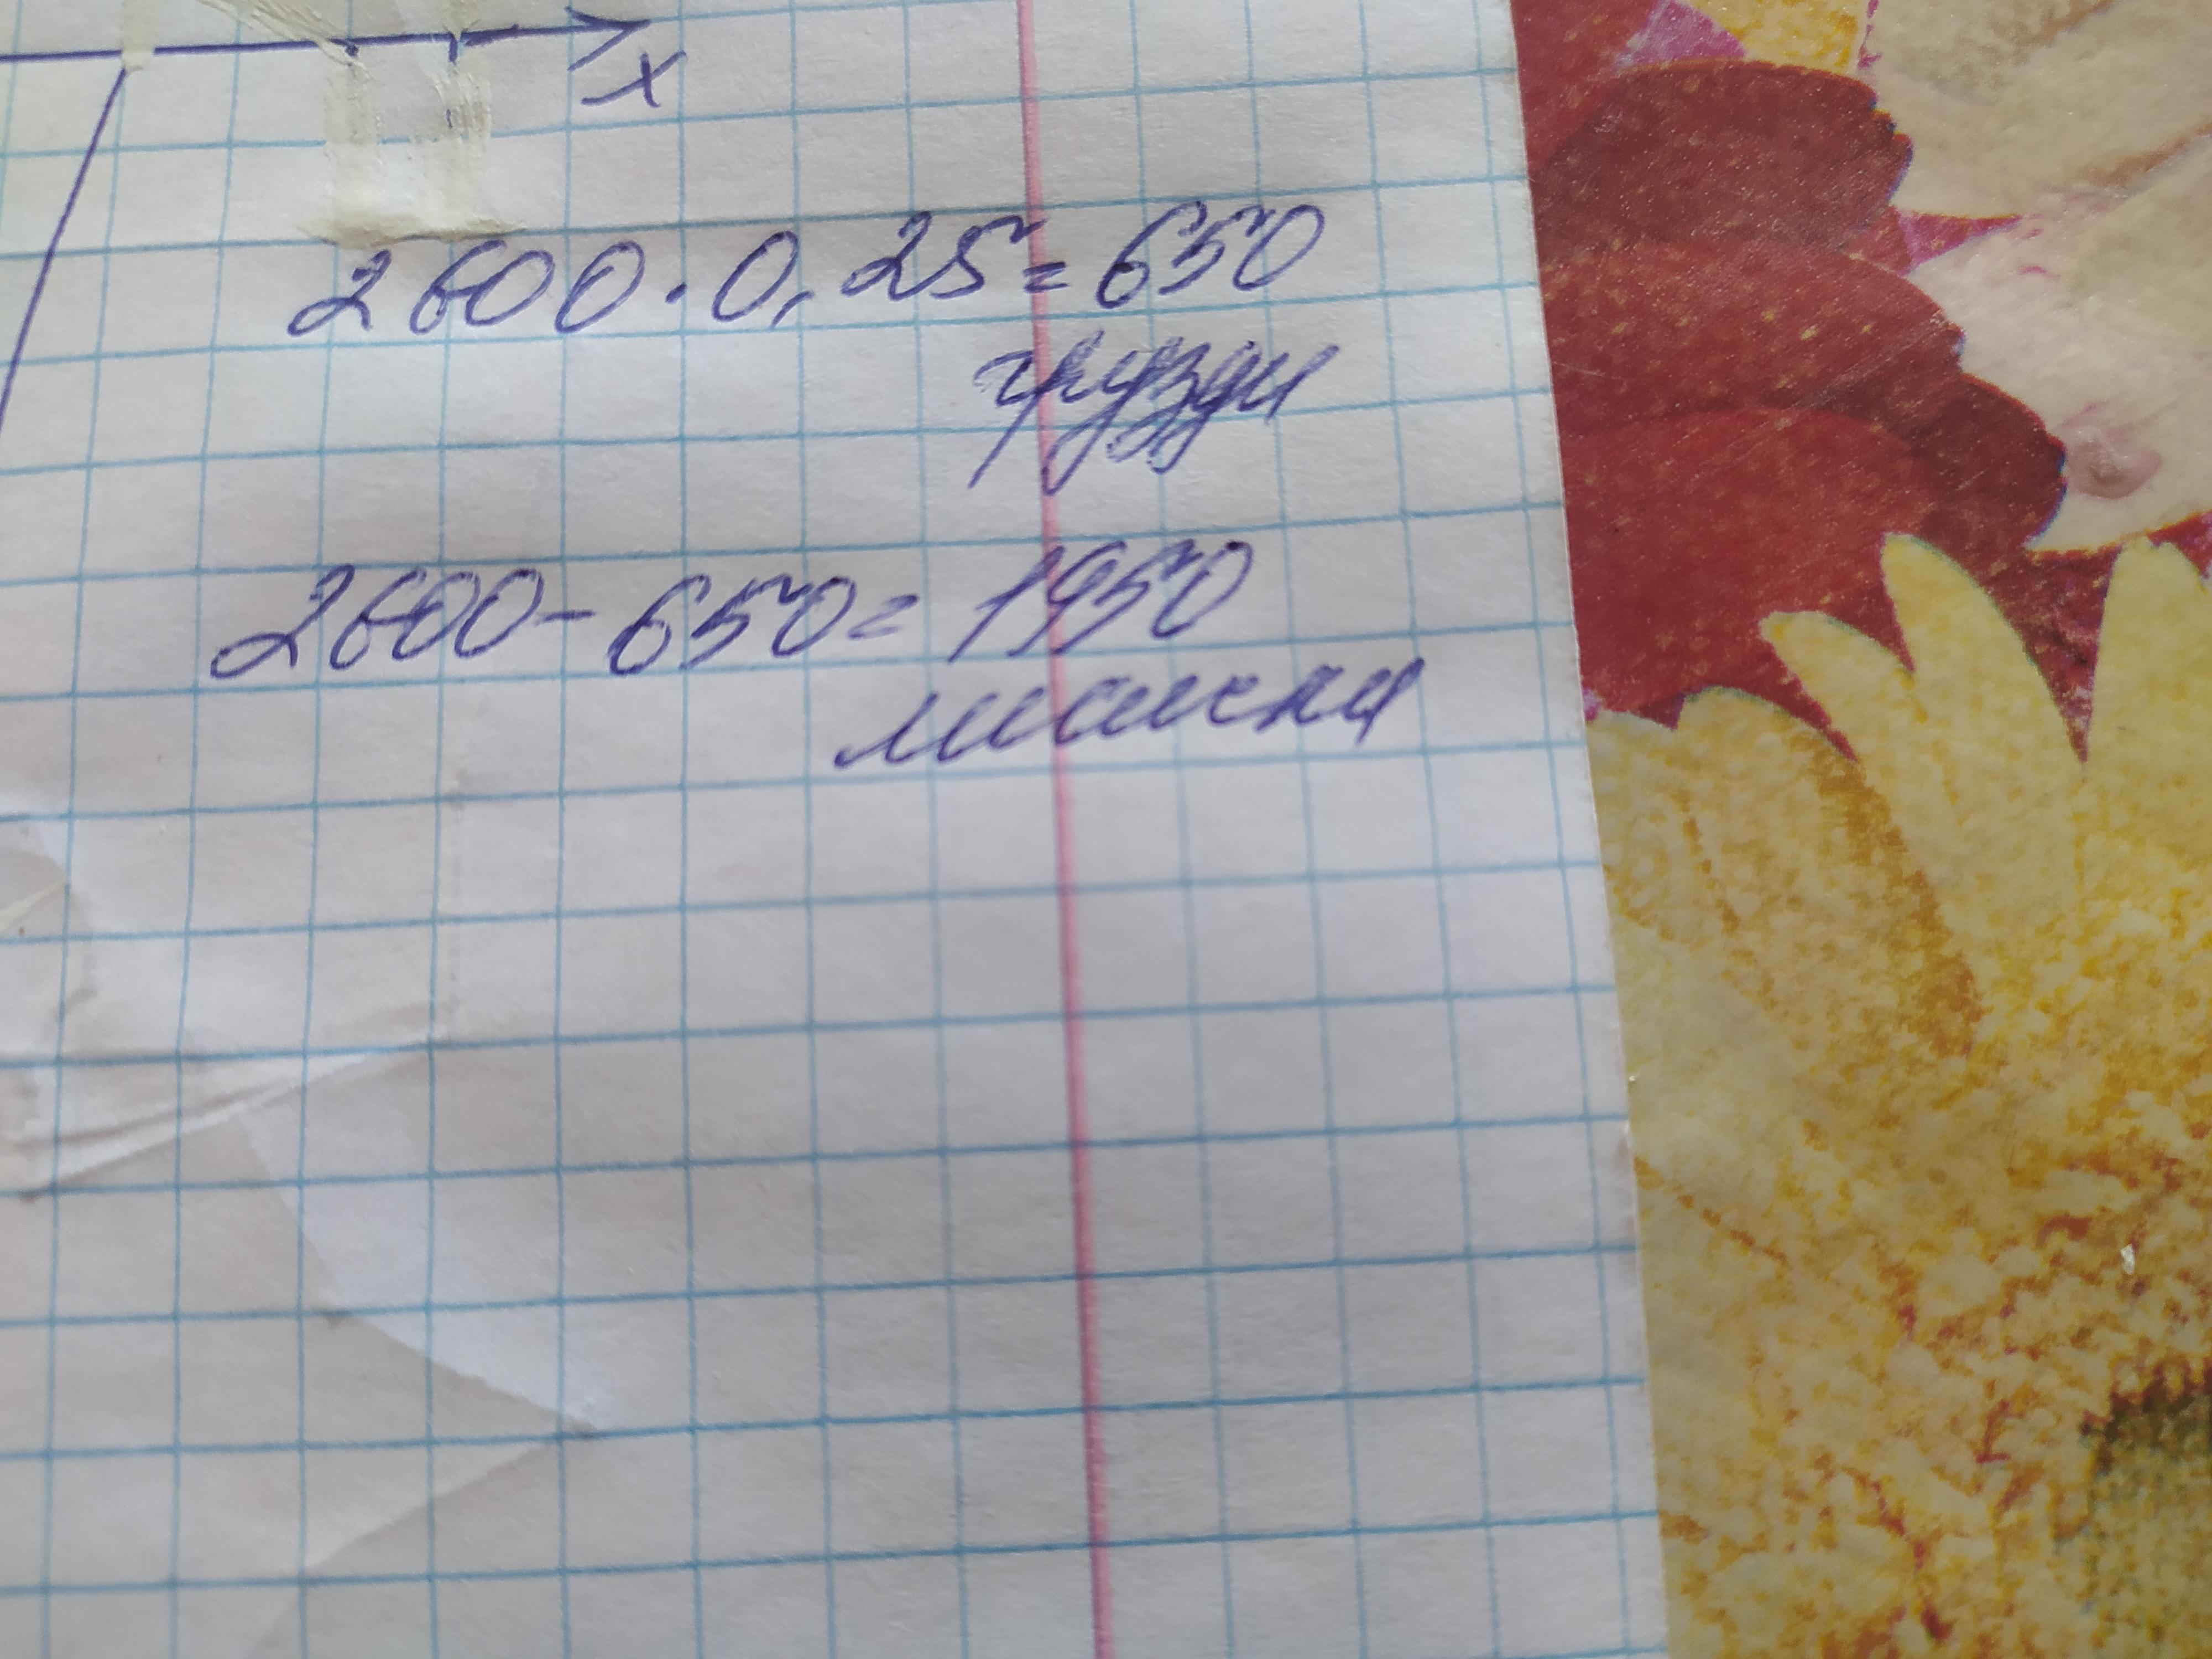 x
2600·0,25=650
грузди
2600-650=1950